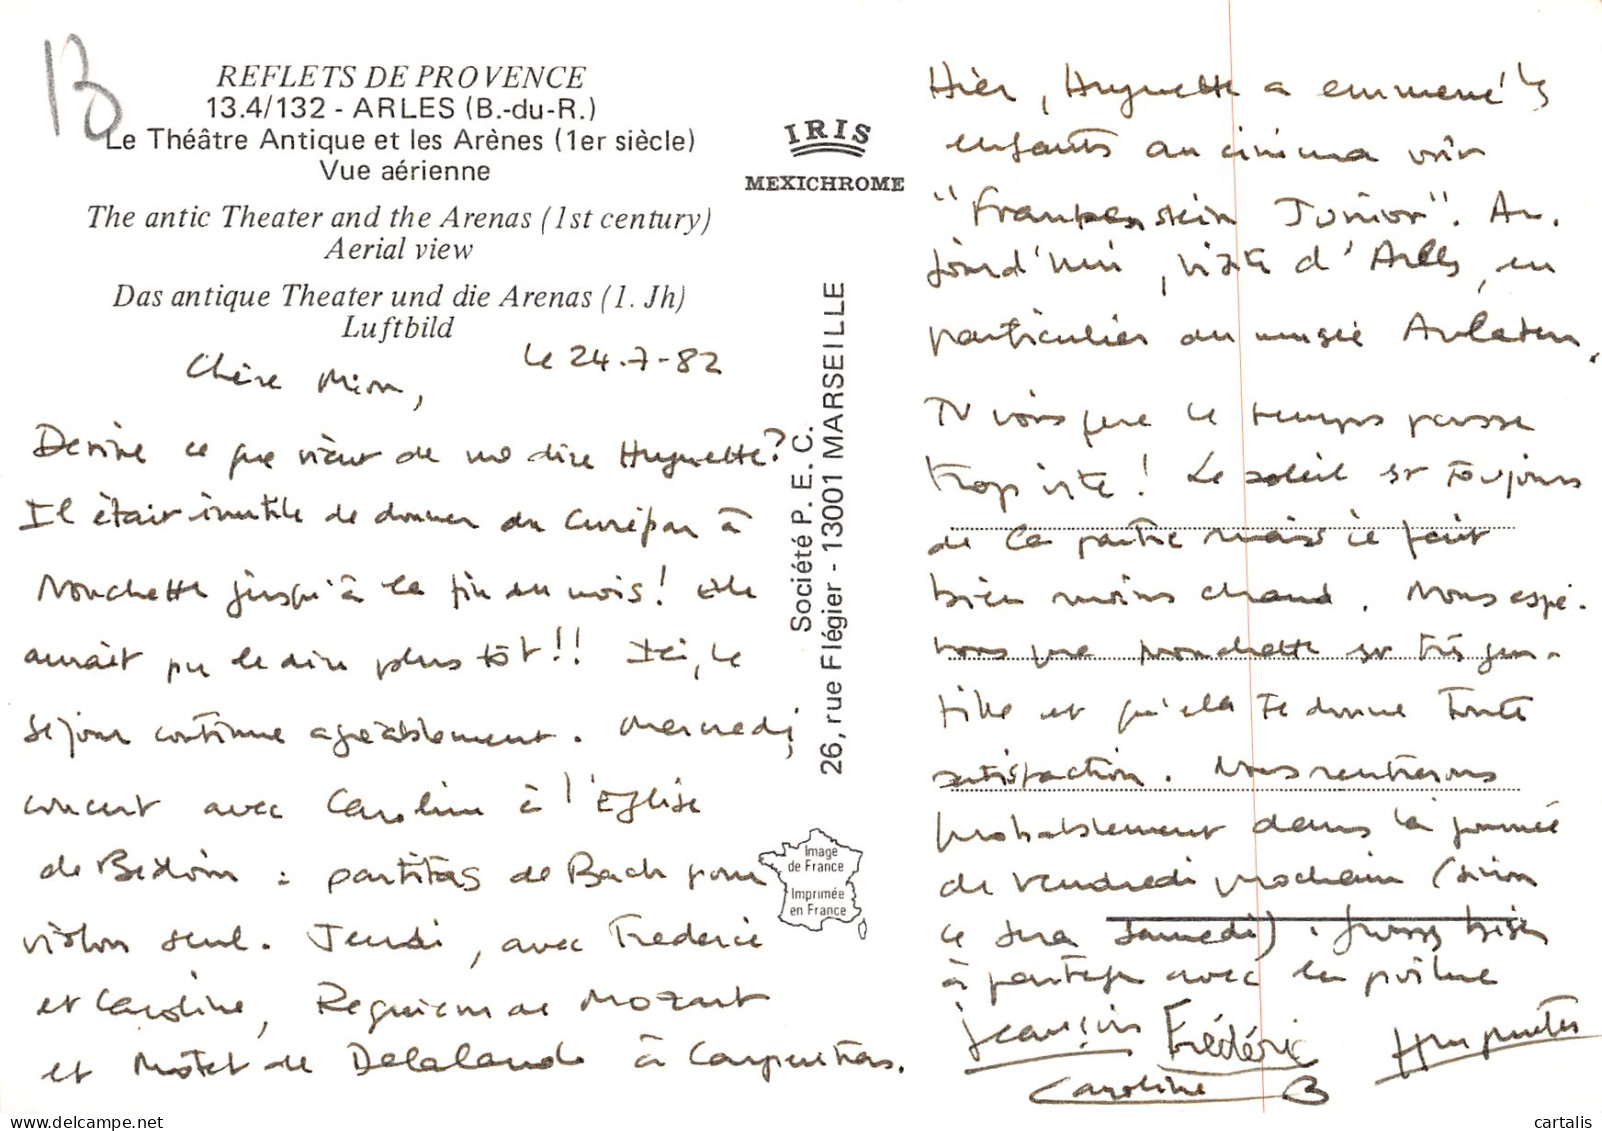 B
REFLETS DE PROVENCE
13.4/132 - ARLES (B.-du-R.)
Le Théâtre Antique et les Arènes (1er siècle)
Vue aérienne
The antic Theater and the Arenas (1st century)
Aerial view
Das antique Theater und die Arenas (1. Jh)
Luftbild
IRIS
MEXICHROME
Société P. E. C.
26, rue Flégier - 13001 MARSEILLE
Image
de France
Imprimée
en France
Le 24-7-82
Chère Mion,
Devine ce que vient de me dire Huguette?
Il était inutile de donner du Curépar à
Nonchette jusqu'à la fin du mois! Elle
aurait pu le dire plus tôt!! Ici, le
séjour continue agréablement. Mercredi,
concert avec Caroline à l'Eglise
de Bédoin : partitas de Bach pour
violon seul. Jeudi, avec Frédéric
et Caroline, Requiem de Mozart
et Motet de Delalande à Carpentras.
Hier, Huguette a emmené les
enfants au cinéma voir
"Frankenstein Junior". Au-
jourd'hui, visite d'Arles, en
particulier du musée Arlaten.
Tu vois que le temps passe
trop vite! Le soleil est toujours
de la partie mais il fait
bien moins chaud. Nous espé-
rons que Nonchette est très gen-
tille et qu'elle te donne toute
satisfaction. Nous rentrerons
probablement dans la journée
de vendredi prochain (sinon
ce sera samedi). Grosses bises
à partager avec la
Frédéric
Huguette
Caroline B
cartalis